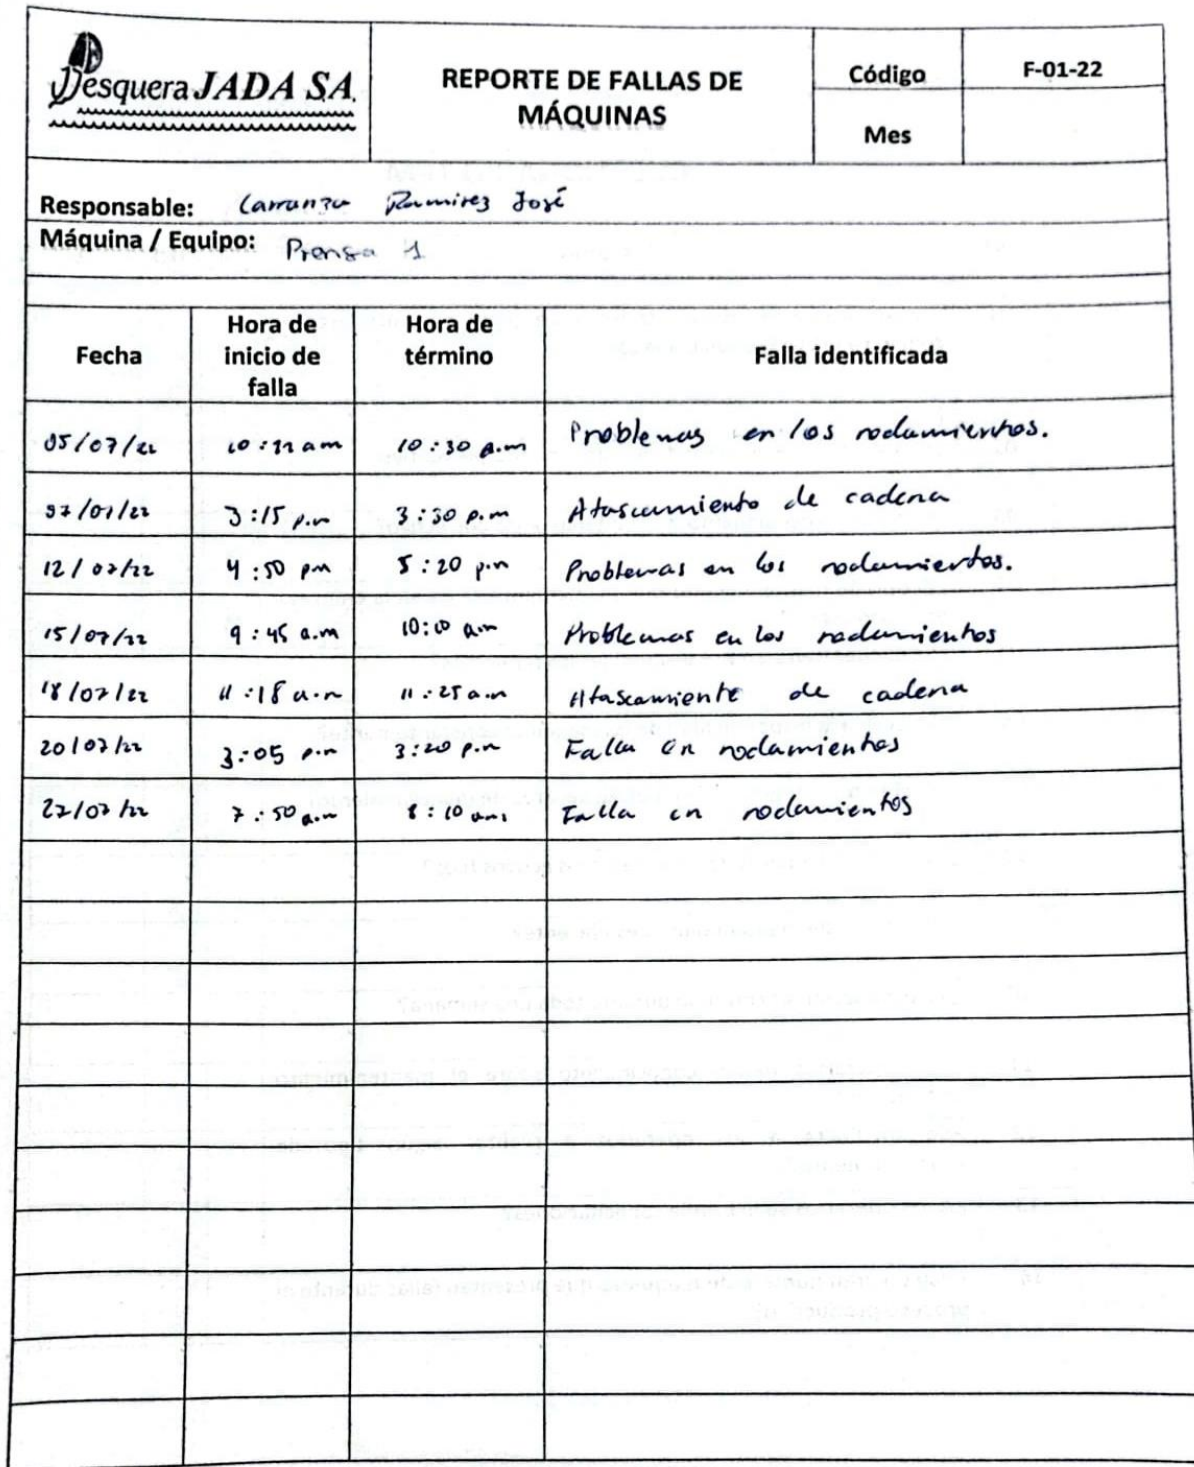 Pesquera JADA S.A.
REPORTE DE FALLAS DE
MÁQUINAS
Código F-01-22
Mes
Responsable: Carranza Ramirez José
Máquina / Equipo: Prensa 1
Fecha
Hora de
inicio de
falla
Hora de
término
Falla identificada
05/07/22 10:30 a.m Problemas en los rodamientos.
07/07/22 3:15 p.m 3:30 p.m Atascamiento de cadena
12/07/22 4:50 pm 5:20 p.m Problemas en los rodamientos.
15/07/22 9:45 a.m 10:00 a.m Problemas en los rodamientos
18/07/22 11:18 a.m 11:25 a.m Atascamiento de cadena
20/07/22 3:05 p.m 3:20 p.m Falla en rodamientos
27/07/22 7:50 a.m 8:10 am Falla en rodamientos